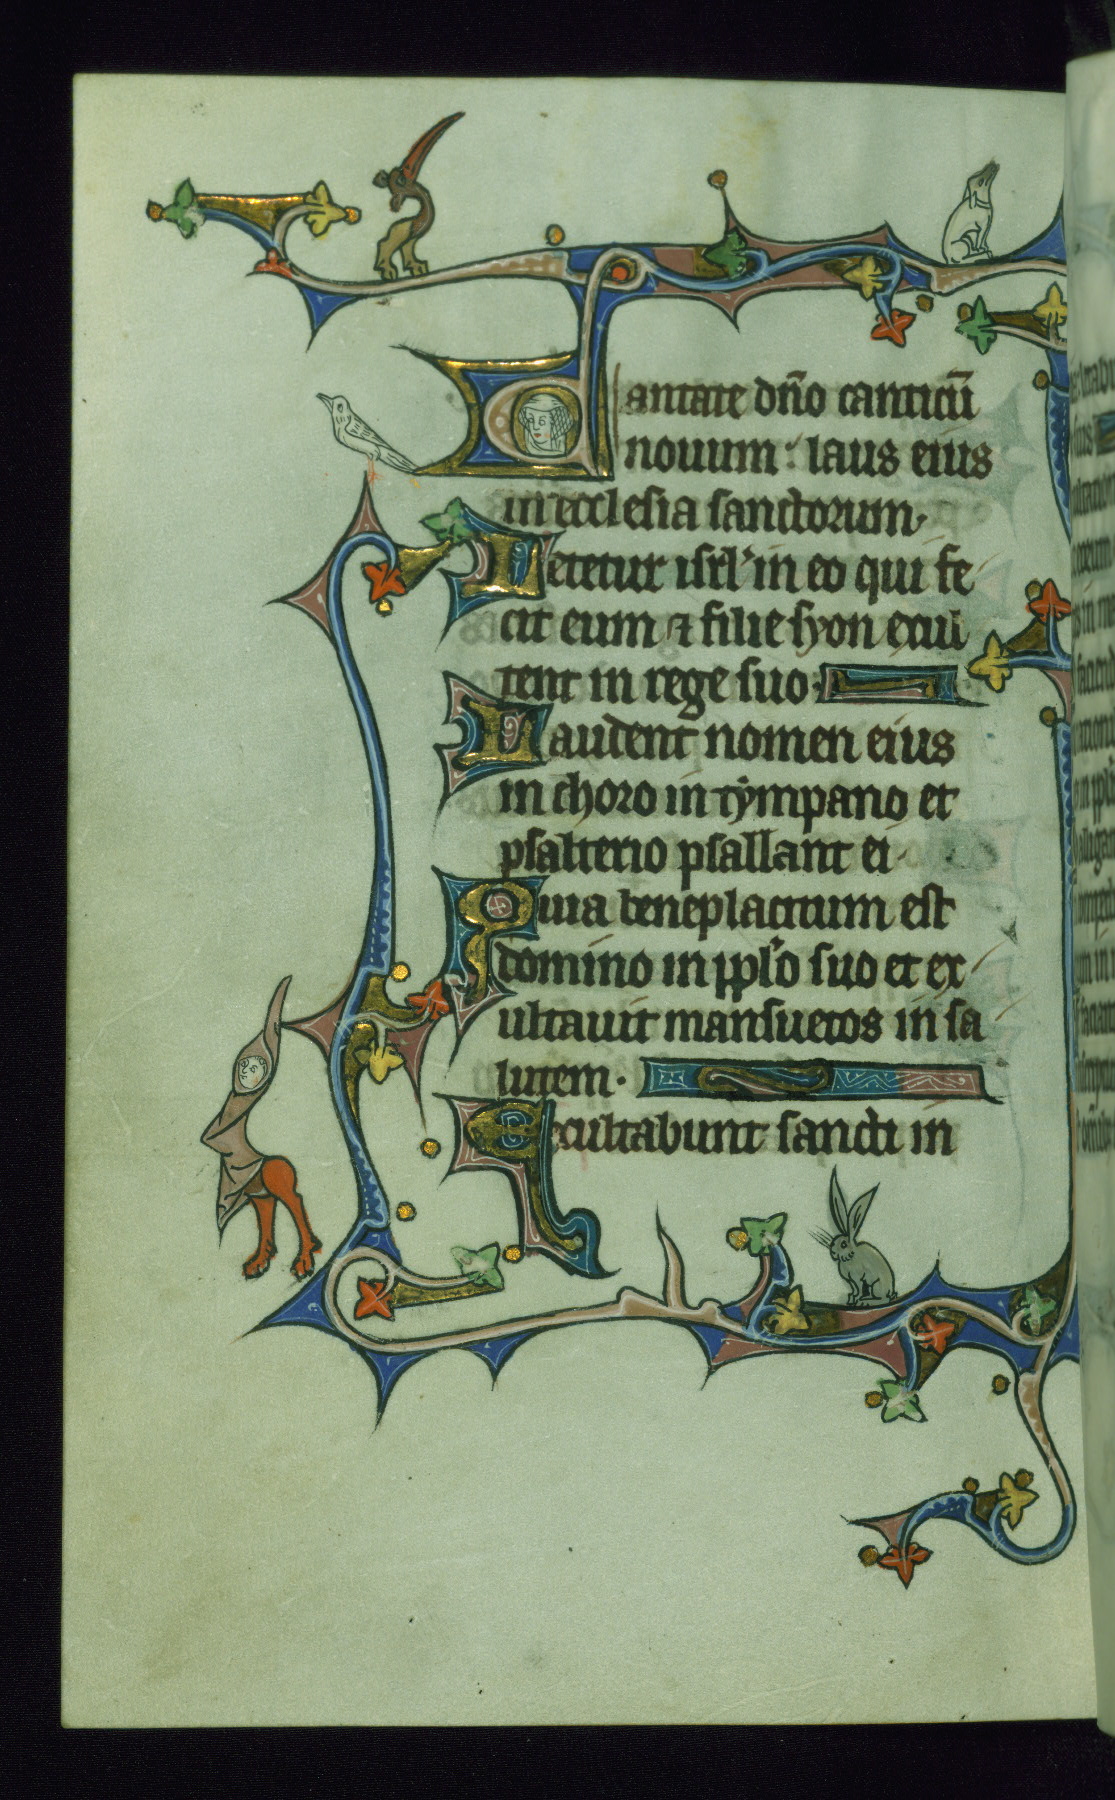 Cantate dño canticū
nouum : laus eius
in ecclesia sanctorum·
Letetur isrl' in eo qui fe
cit eum ⁊ filie syon exul
tent in rege suo·
Laudent nomen eius
in choro in tympano et
psalterio psallant ei·
Quia beneplacitum est
domino in pplo suo et ex
ultauit mansuetos in sa
lutem·
Exultabunt sancti in